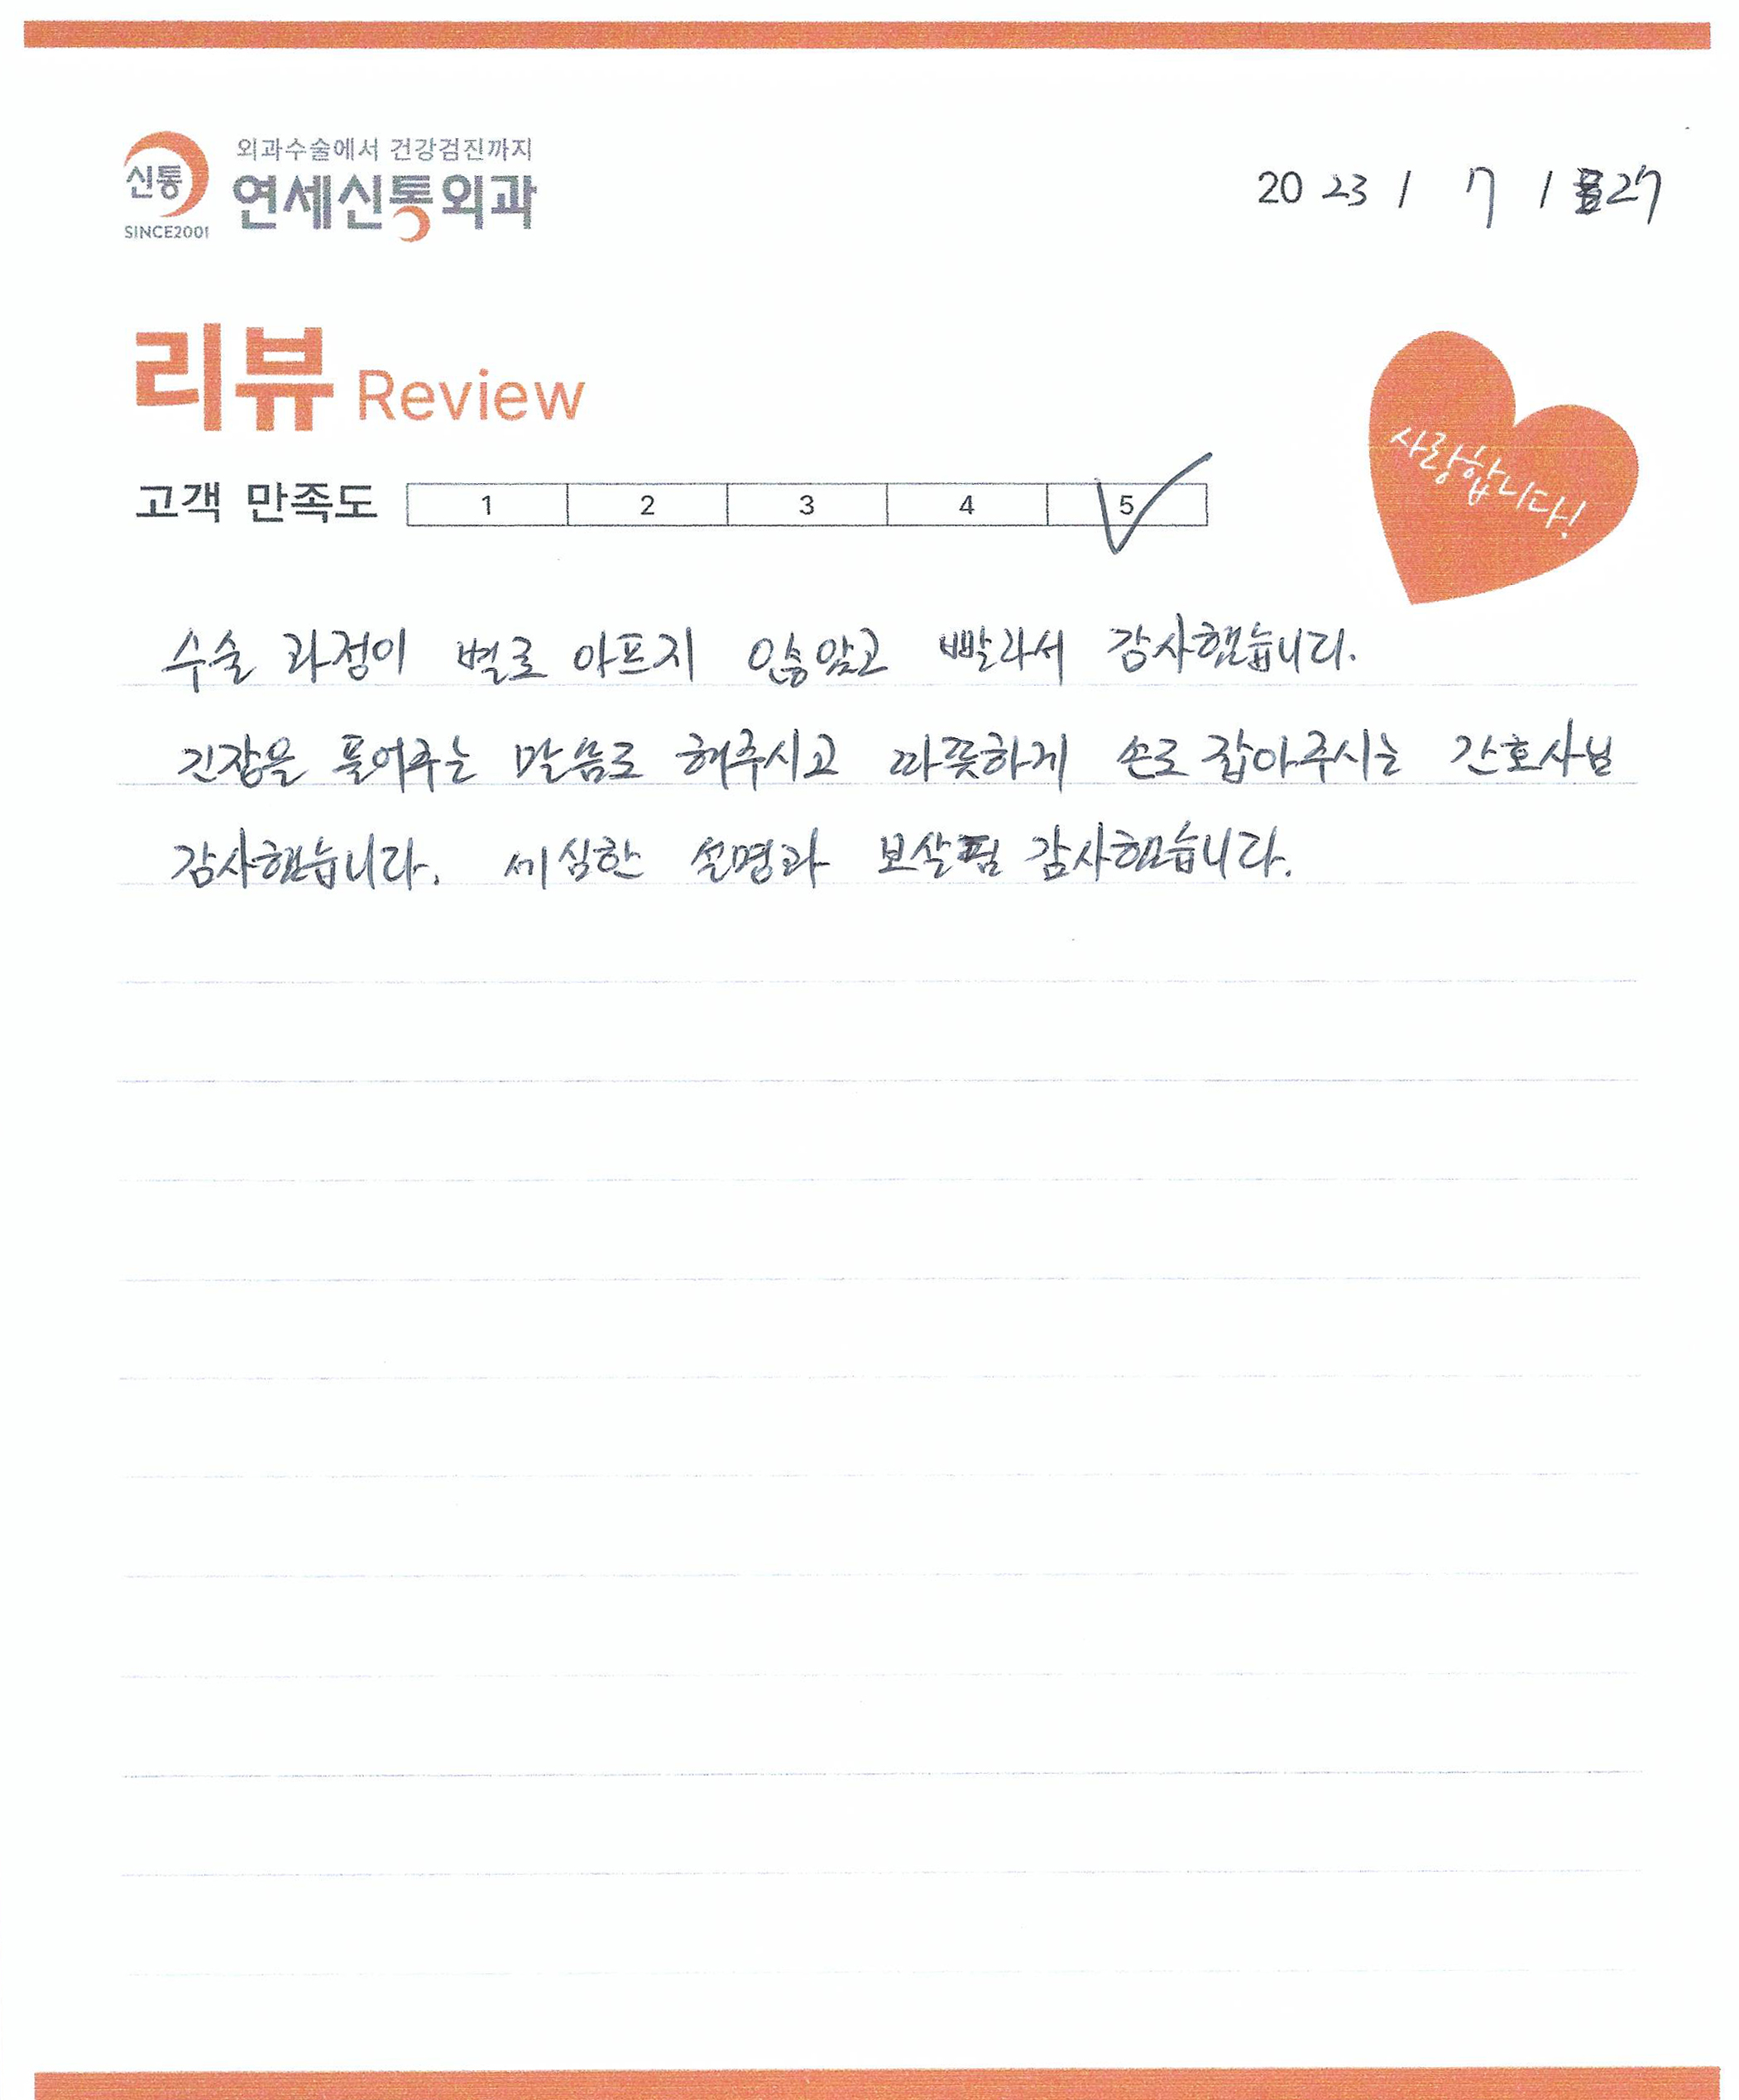 신통
SINCE2001
외과수술에서 건강검진까지
연세신통외과
2023 / 7 / 27
리뷰 Review
사랑합니다!
고객 만족도 1 2 3 4 5
수술 과정이 별로 아프지 않았고 빨라서 감사했습니다.
긴장을 풀어주는 말씀도 해주시고 따뜻하게 손도 잡아주시는 간호사님
감사했습니다. 세심한 설명과 보살핌 감사했습니다.